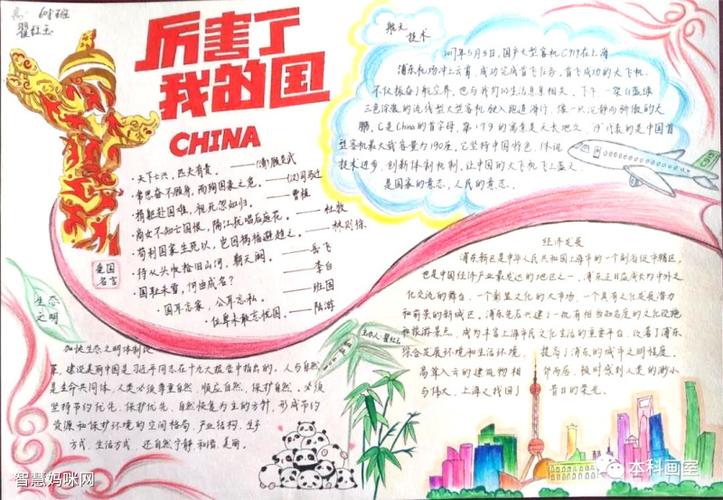 高一
翟红玉
厉害了
我的国
CHINA
·天下兴亡,匹夫有责。——(清)顾炎武
·常思奋不顾身,而殉国家之急。——(汉)司马迁
·捐躯赴国难,视死忽如归。——曹植
·商女不知亡国恨,隔江犹唱后庭花。——杜牧
·苟利国家生死以,岂因祸福避趋之。——林则徐
·待从头收拾旧山河,朝天阙。——岳飞
·国耻未雪,何由成名?——李白
·国耳忘家,公耳忘私。——班固
·位卑未敢忘忧国。——陆游
爱国
名言
航天
技术
2017年5月5日,国产大型客机C919在上海
浦东机场冲上云霄,成功完成首飞任务,首飞成功的大飞机,
不仅振奋了航空界,也与我们的生活息息相关。下午,一架以蓝绿
三色涂装的流线型大型客机驶入跑道滑行,像一只沉静而骄傲的大
鹏,C是China的首字母,第1个9的寓意是天长地久,19代表的是中国首
型客机最大载客量为190座,它坚持中国特色,体现
技术进步,创新体制机制,让中国的大飞机飞上蓝天
是国家的意志,人民的意志。
经济发展
浦东新区是中华人民共和国上海市的一个副省级市辖区,
也是中国经济产业最发达的地区之一,浦东正日益成为中外文
化交流的舞台,一个彰显文化的大市场,一个具有文化发展潜力
和前景的新城区,浦东先后兴建了一批有相当知名度的文化设施
和旅游景点,成为丰富上海市民文化生活的重要平台,改善了浦东
综合发展环境和生活环境,提高了浦东的城市文明程度,
高耸入云的建筑物相
与伟大,上海又找回了昔日的荣光。
生态
文明
加快生态文明体制改
革,建设美丽中国是习近平同志在十九大报告中指出的,人与自然
是生命共同体,人类必须尊重自然,顺应自然,保护自然,必须
坚持节约优先,保护优先,自然恢复为主的方针,形成节约
资源和保护环境的空间格局,产业结构,生产
方式,生活方式,还自然宁静,和谐,美丽。
主办人:翟红玉
智慧妈咪网
本科画室